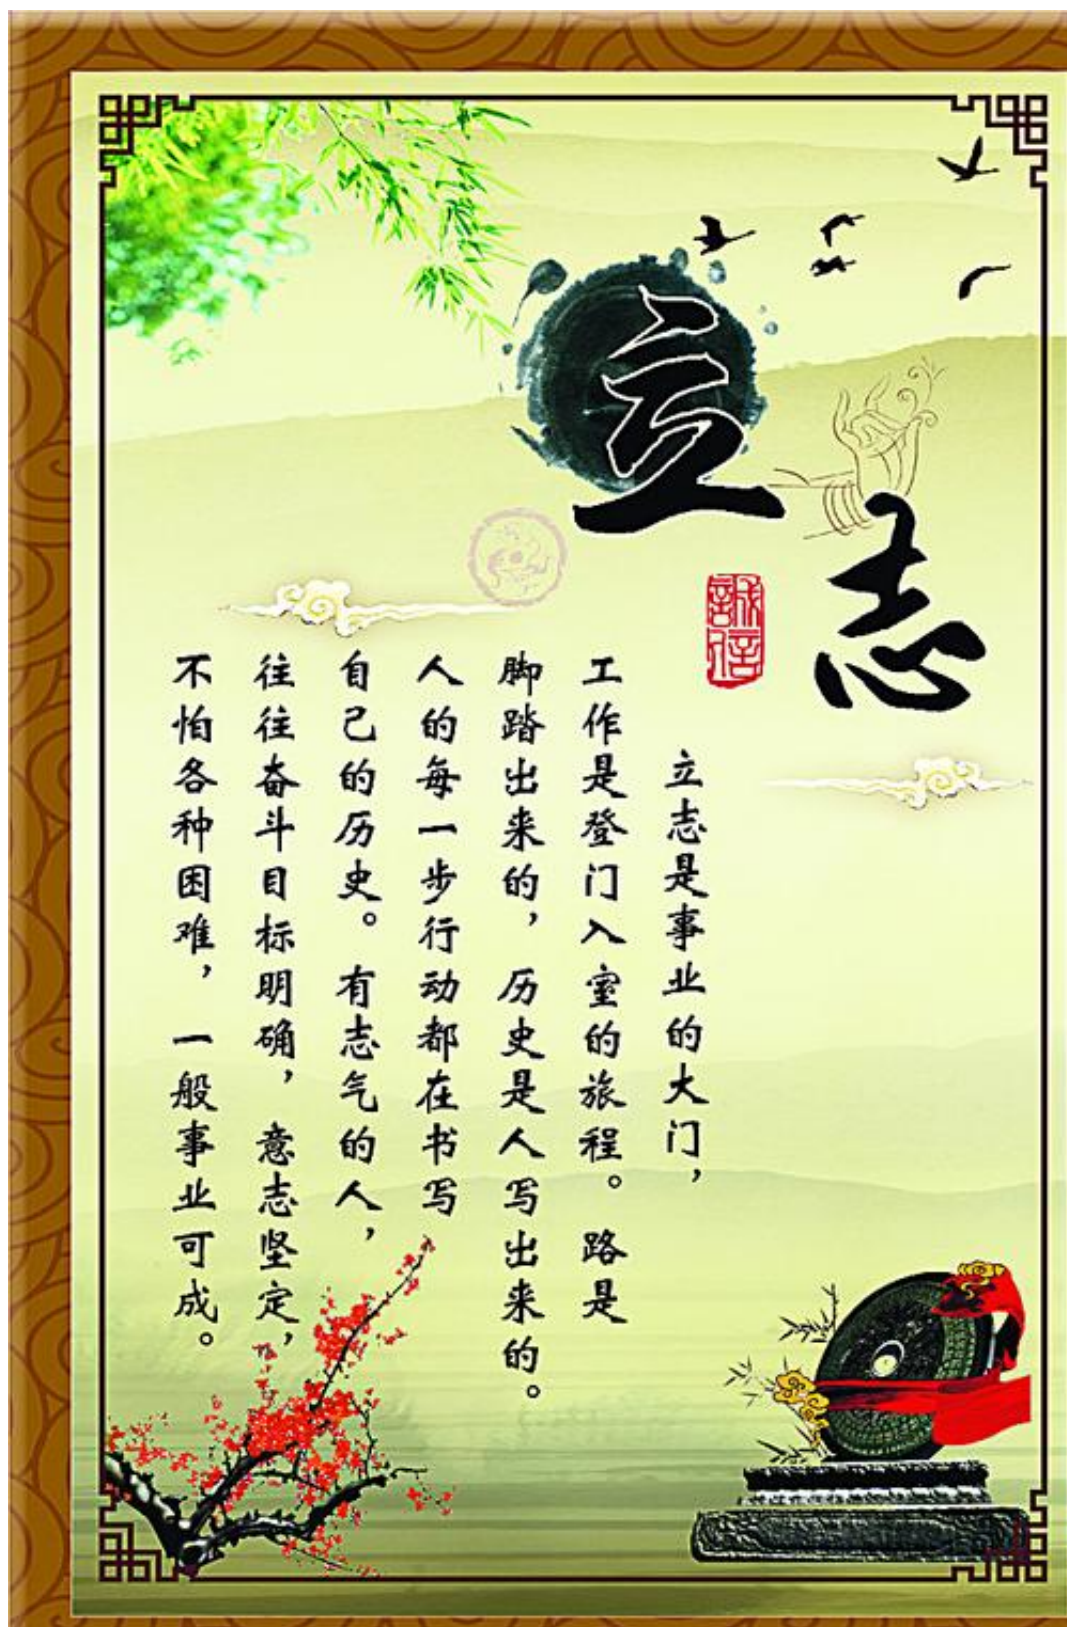 立志
誠信
立志是事业的大门，
工作是登门入室的旅程。路是
脚踏出来的，历史是人写出来的。
人的每一步行动都在书写
自己的历史。有志气的人，
往往奋斗目标明确，意志坚定，
不怕各种困难，一般事业可成。